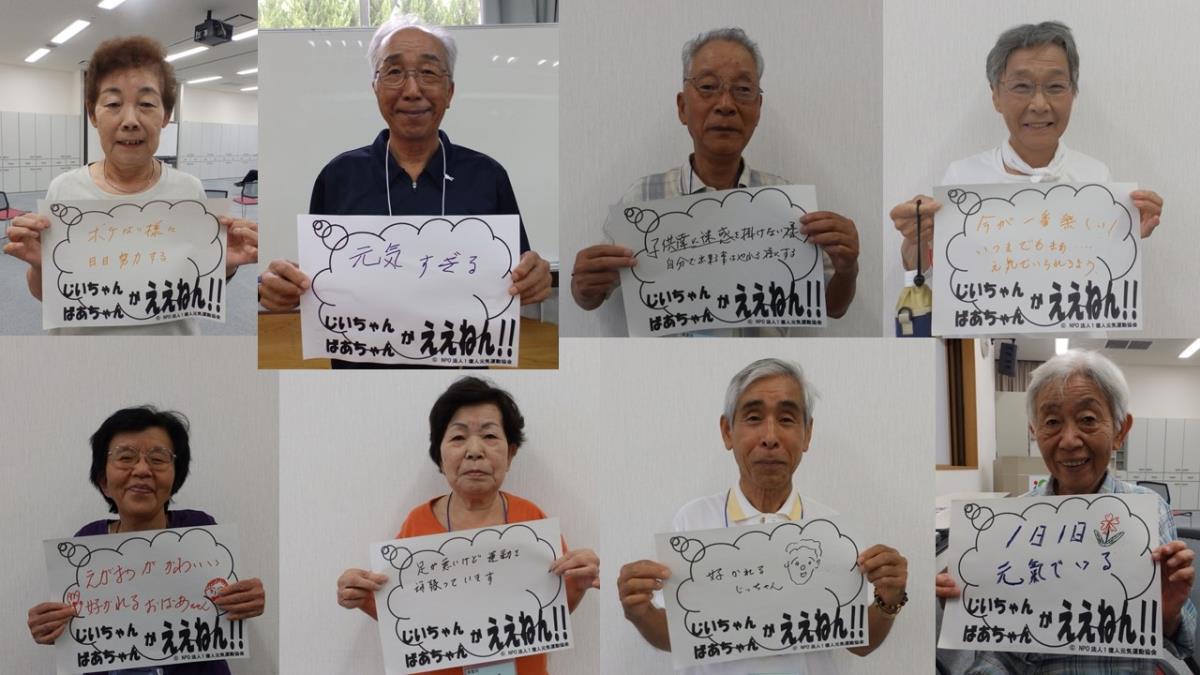 ボケない様に
日日努力する
じいちゃん
ばあちゃん
が ええねん!!
© NPO法人1億人元気運動協会
元気すぎる
じいちゃん
ばあちゃん
が ええねん!!
© NPO法人1億人元気運動協会
子供達に迷惑を掛けない様
自分で出来る事は
じいちゃん
ばあちゃん
が ええねん!!
© NPO法人1億人元気運動協会
今が一番楽しい!
いつまでもまあ・・・・
元気でいられるよう
じいちゃん
ばあちゃん
が ええねん!!
© NPO法人1億人元気運動協会
えがおがかわいい
好かれるおばあちゃん
じいちゃん
ばあちゃん
が ええねん!!
© NPO法人1億人元気運動協会
足が悪いけど運動を
頑張っています
じいちゃん
ばあちゃん
が ええねん!!
© NPO法人1億人元気運動協会
好かれる
じっちゃん
じいちゃん
ばあちゃん
が ええねん!!
© NPO法人1億人元気運動協会
1日1日
元氣でいる
じいちゃん
ばあちゃん
が ええねん!!
© NPO法人1億人元気運動協会